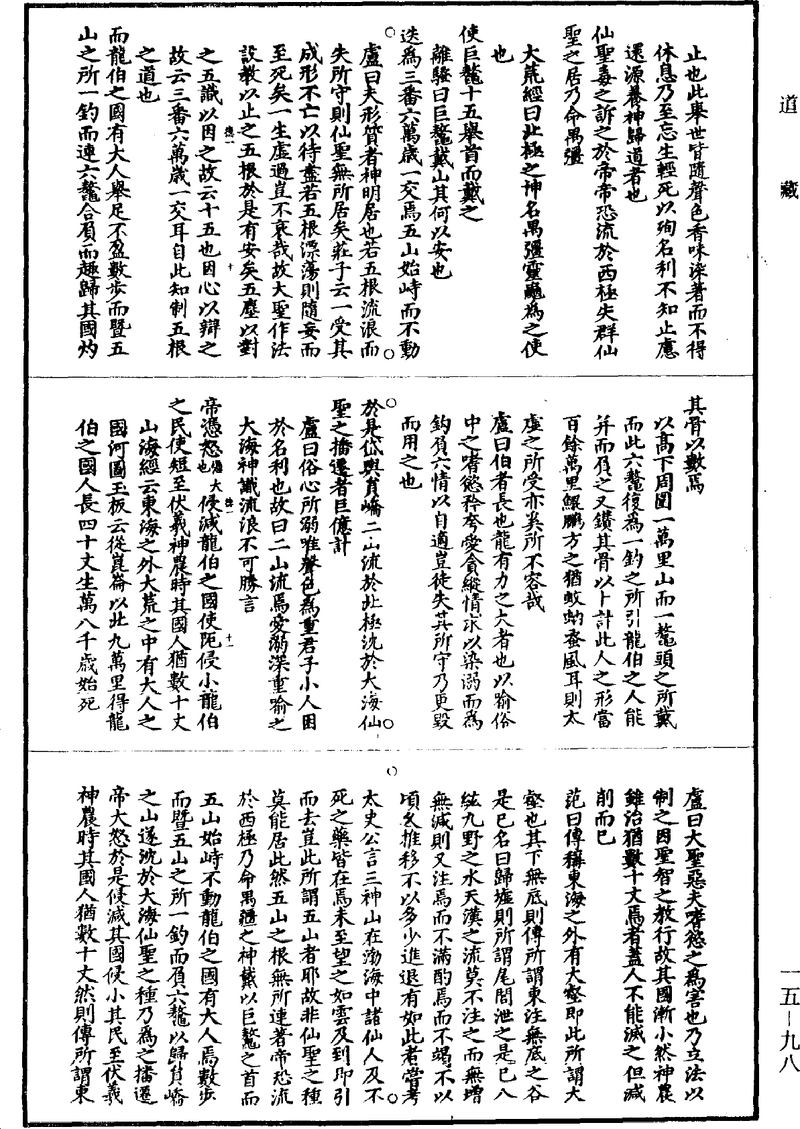 道藏
止也此舉世皆隨聲色香味染著而不得
休息乃至忘生輕死以殉名利不知止慮
還源養神歸道者也
仙聖毒之訴之於帝帝恐流於西極失群仙
聖之居乃命禺彊
大荒經曰北極之神名禺彊靈龜為之使
也
使巨鼇十五舉首而戴之
離騷曰巨鼇戴山其何以安也
迭為三番六萬歲一交焉五山始峙而不動
盧曰夫形質者神明居也若五根流浪而
失所守則仙聖無所居矣莊子云一受其
成形不亡以待盡若五根漂蕩則隨妄而
至死矣一生虛過豈不哀哉故大聖作法
設教以止之五根於是有安矣五塵以對
之五識以因之故云十五也因心以辯之
故云三番六萬歲一交耳自此知制五根
之道也
而龍伯之國有大人舉足不盈數步而暨五
山之所一釣而連六鼇合負而趣歸其國灼
其骨以數焉
以高下周圍一萬里山而一鼇頭之所戴
而此六鼇復為一釣之所引龍伯之人能
并而負之又鑽其骨以卜計此人之形當
百餘萬里鯤鵬方之猶蚊蚋蚤虱耳則太
虛之所受亦奚所不容哉
盧曰伯者長也龍有力之大者也以喻俗
中之嗜慾矜夸愛貪縱情求以染溺而為
鈎負六情以自適豈徒失其所守乃更毀
而用之也
於是岱輿員嶠二山流於北極沈於大海仙
聖之播遷者巨億計
盧曰俗心所溺唯聲色為重君子小人因
於名利也故曰二山流焉愛溺深重喻之
大海神識流浪不可勝言
帝憑怒憑大也侵減龍伯之國使阨侵小龍伯
之民使短至伏羲神農時其國人猶數十丈
山海經云東海之外大荒之中有大人之
國河圖玉板云從崑崙以北九萬里得龍
伯之國人長四十丈生萬八千歲始死
盧曰大聖惡夫嗜慾之為害也乃立法以
制之因聖智之教行故其國漸小然神農
雖治猶數十丈焉者蓋人不能滅之但減
削而已
范曰傳稱東海之外有大壑即此所謂大
壑也其下無底則傳所謂東注無底之谷
是已名曰歸墟則所謂尾閭泄之是已八
紘九野之水天漢之流莫不注之而無增
無減則又注焉而不滿酌焉而不竭不以
頃久推移不以多少進退有如此者嘗考
太史公言三神山在渤海中諸仙人及不
死之藥皆在焉未至望之如雲及到即引
而去豈此所謂五山者耶故非仙聖之種
莫能居此然五山之根無所連著帝恐流
於西極乃命禺彊之神戴以巨鼇之首而
五山始峙不動龍伯之國有大人焉數步
而暨五山之所一釣而負六鼇以歸員嶠
之山遂沈於大海仙聖之種乃為之播遷
帝大怒於是侵減其國侵小其民至伏羲
神農時其國人猶數十丈然則傳所謂東
一五-九八